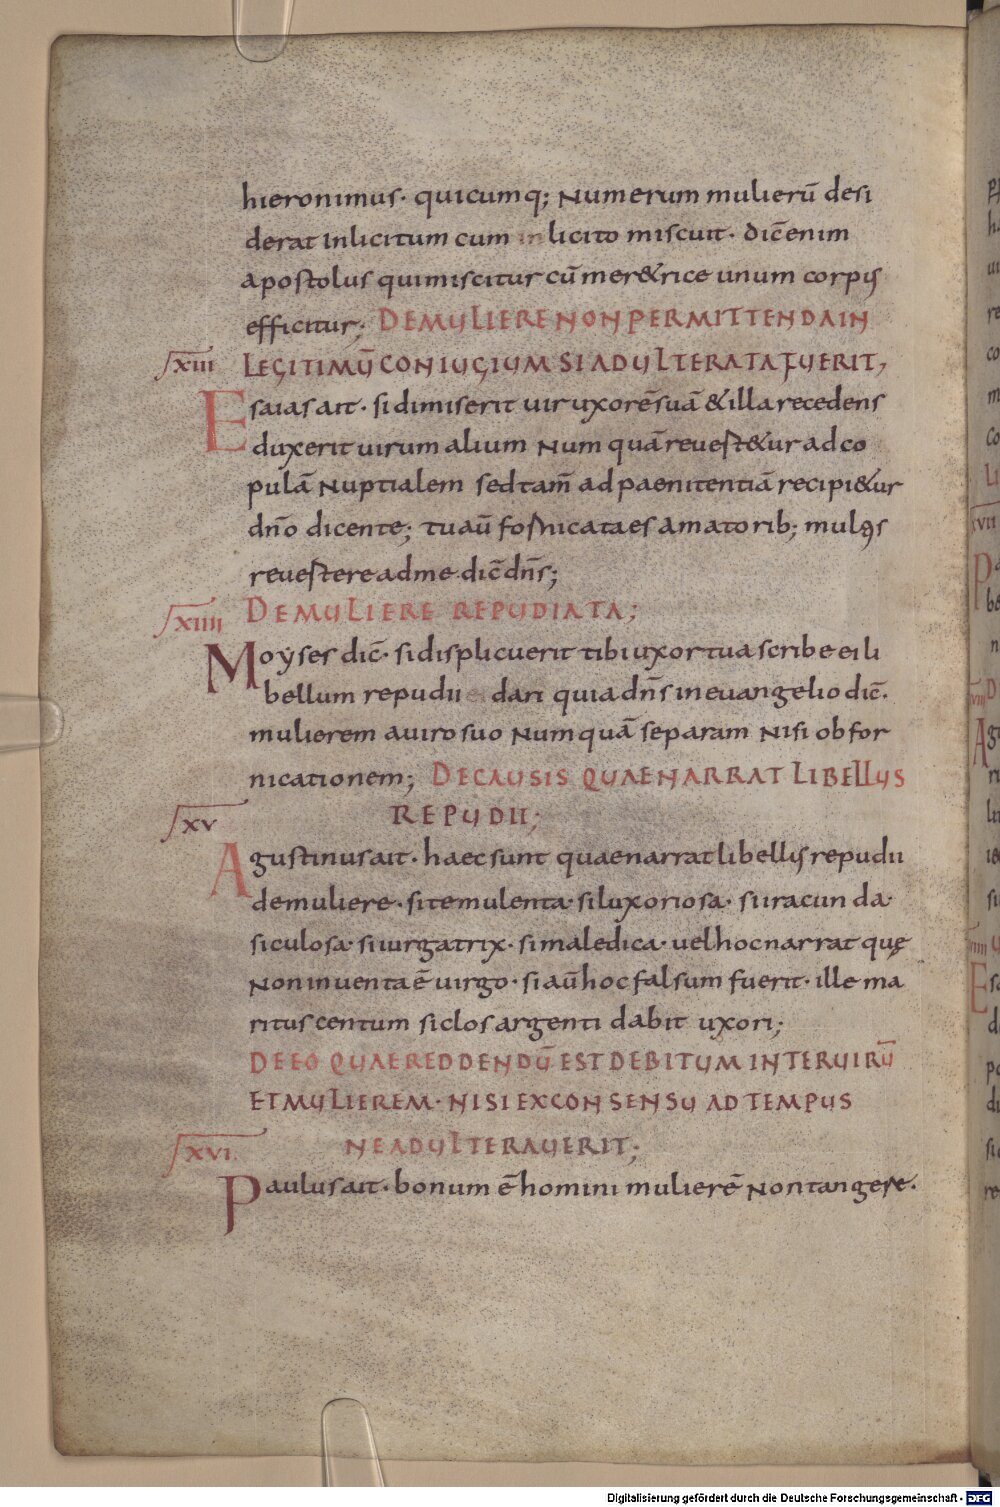 hieronimus· quicumq; numerum mulierū desi
derat inlicitum cum in licito miscuit· dic̄ enim
apostolus qui miscitur cū mer&rice unum corpus
efficitur; DE MULIERE NON PERMITTENDA IN
XIII LEGITIMŪ CONIUGIUM SI ADULTERATA FUERIT,
Esaias ait· si dimiserit uir uxorē suā & illa recedens
duxerit uirum alium num quā reuest&ur ad co
pulā nuptialem sed tam̄ ad paenitentiā recipi&ur
dn̄o dicente; tu aū fornicata es amatorib; multis
reuestere ad me dic̄ dn̄s;
XIIII DE MULIERE REPUDIATA;
Moẏses dic̄· si displicuerit tibi uxor tua scribe ei li
bellum repudii dari quia dn̄s in euangelio dic̄.
mulierem a uiro suo numquā separam nisi ob for
nicationem; DE CAUSIS QUAE NARRAT LIBELLUS
XV REPUDII;
Agustinus ait· haec sunt quae narrat libellus repudii
de muliere· si temulenta· si luxoriosa· si iracunda·
siculosa· si iurgatrix· si maledica· uel hoc narrat quę
non inuenta ē uirgo· si aū hoc falsum fuerit· ille ma
ritus centum siclos argenti dabit uxori;
DE EO QUAE REDDENDŪ EST DEBITUM INTER UIRŪ
ET MULIEREM· NISI EX CONSENSU AD TEMPUS
XVI. NE ADULTERAUERIT;
Paulus ait· bonum ē homini mulierē non tangere·
Digitalisierung gefördert durch die Deutsche Forschungsgemeinschaft - DFG